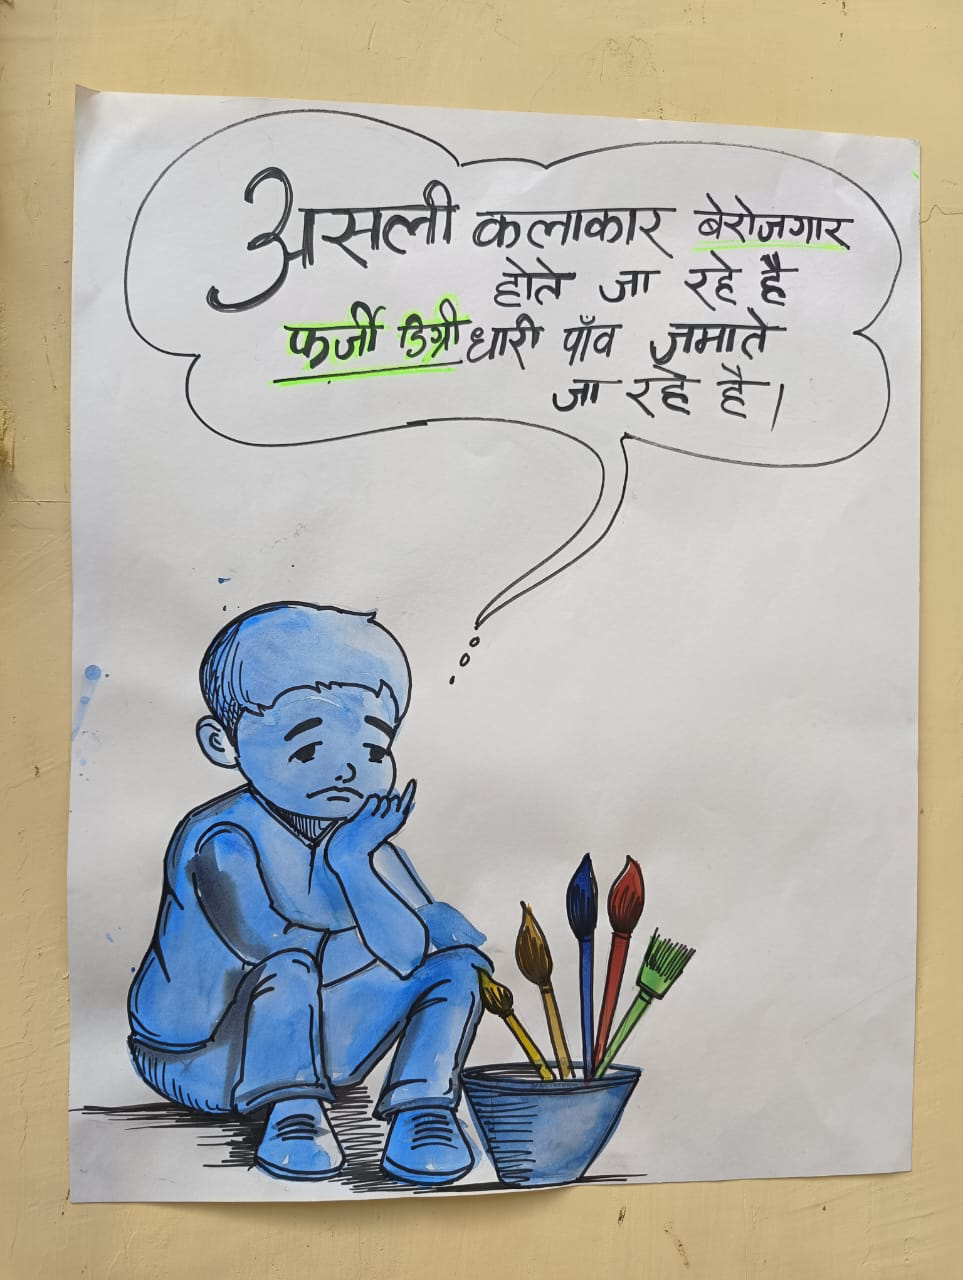 असली कलाकार बेरोजगार
होते जा रहे है
फर्जी डिग्री धारी पाँव जमाते
जा रहे है।